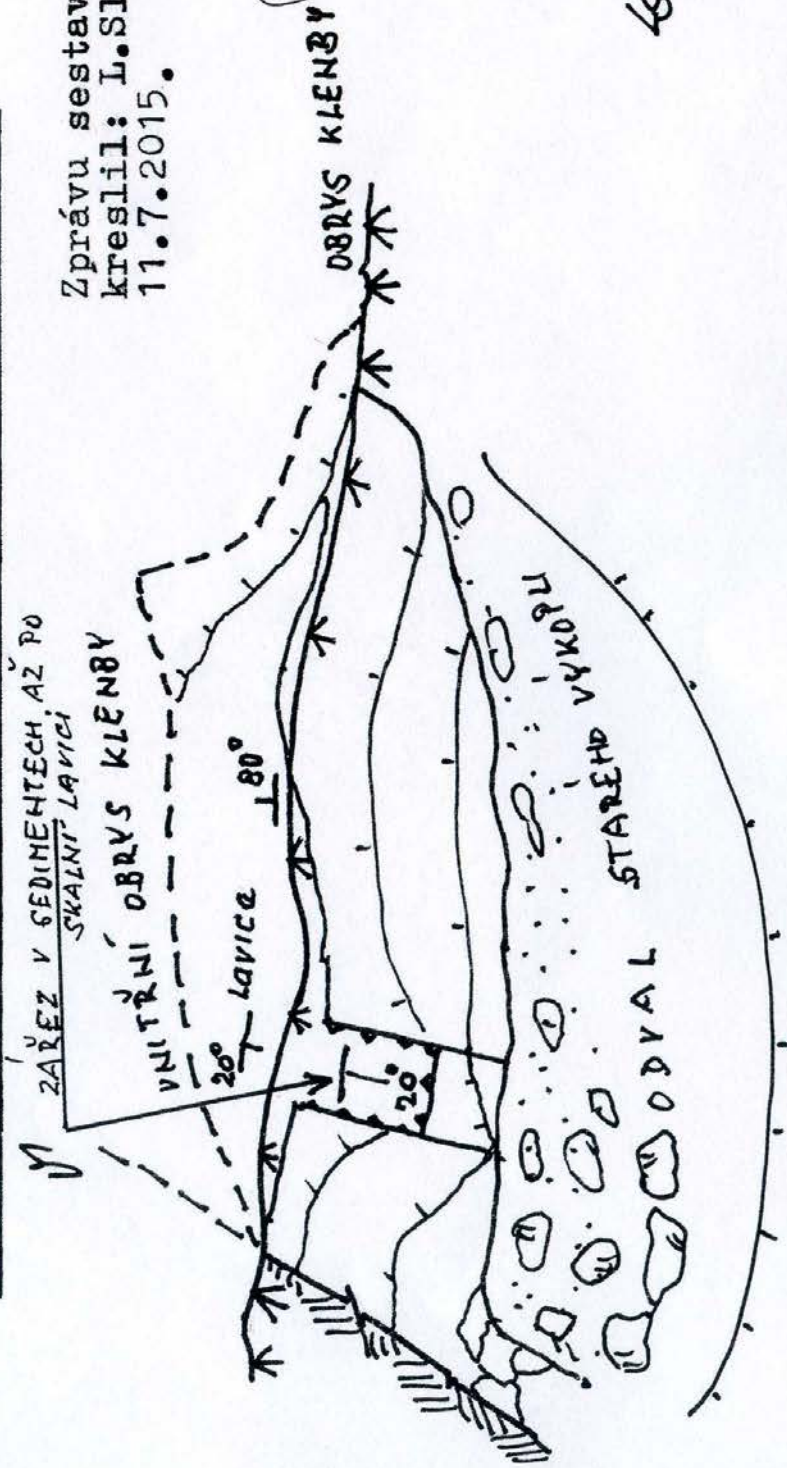 Zprávu sestav
kreslil: L.Sl
11.7.2015.
ZÁŘEZ V SEDIMENTECH AŽ PO
SKALNÍ LAVICI
VNITŘNÍ OBRYS KLENBY
OBRYS KLENBY
20° Lavice
80°
20°
ODVAL STARÉHO VÝKOPU